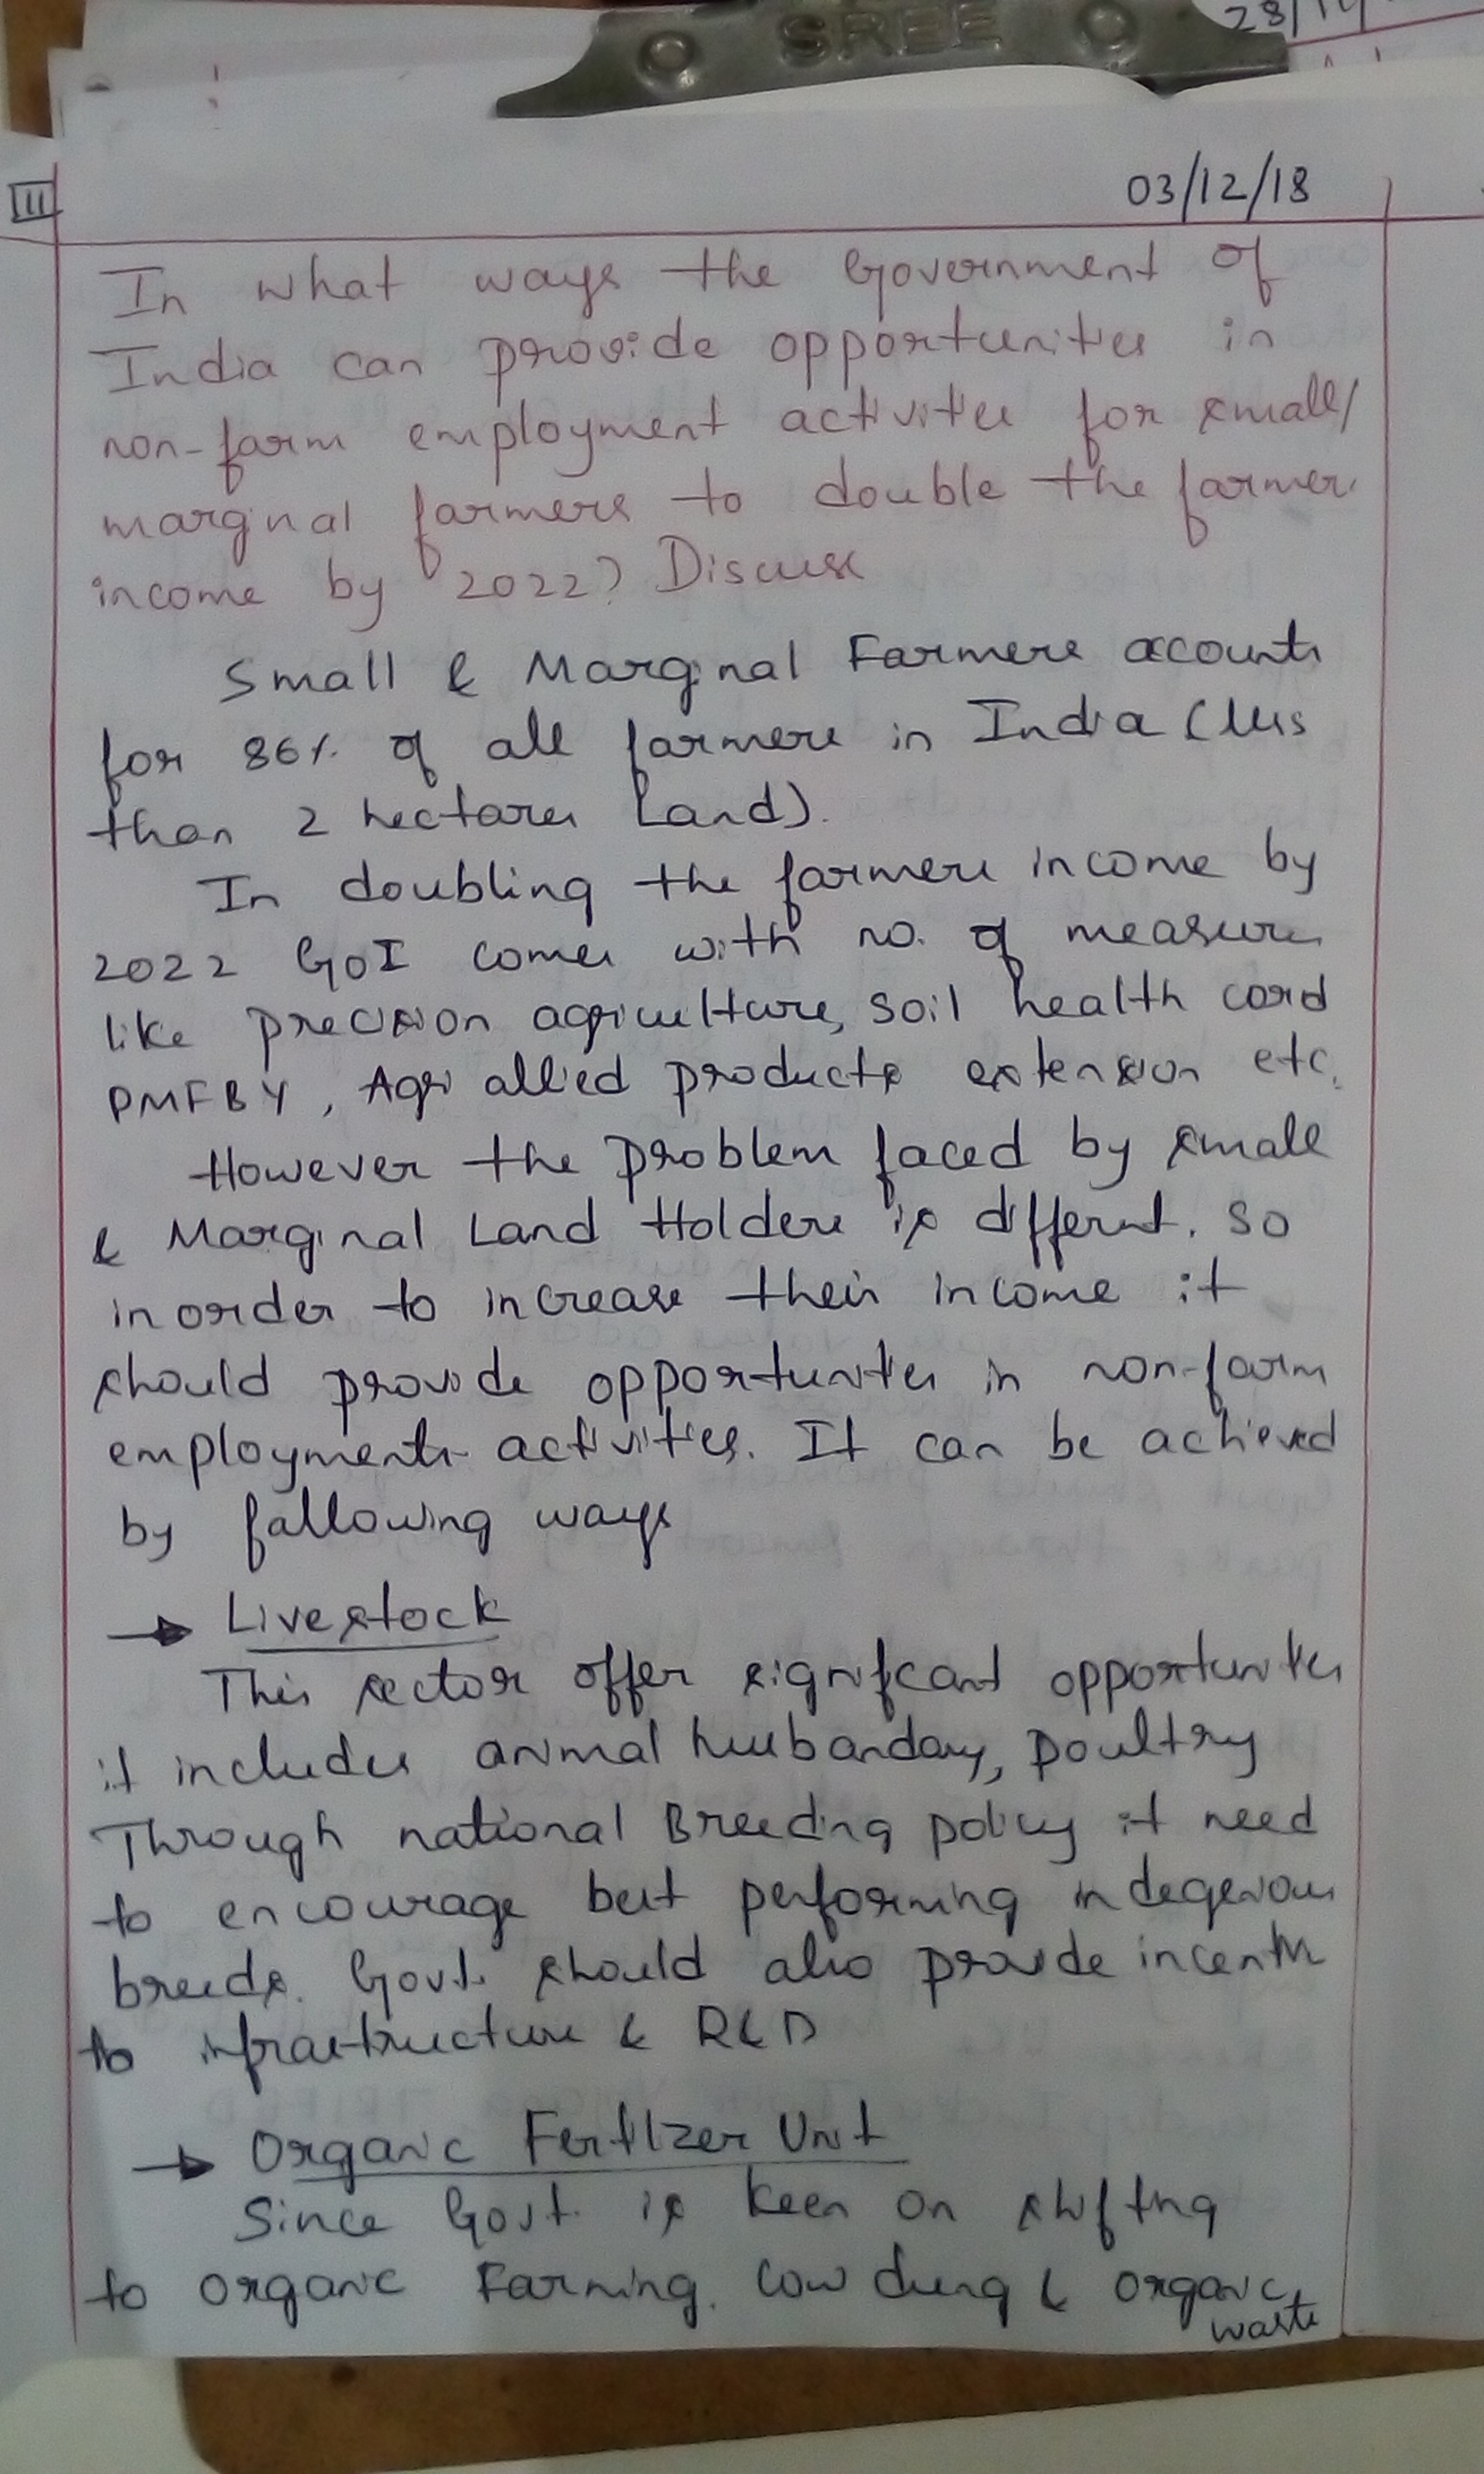 SREE
28/11/
III
03/12/18
In what ways the Government of
India can provide opportunities in
non-farm employment activities for small/
marginal farmers to double the farmer
income by 2022? Discuss
Small & Marginal Farmers accounts
for 86% of all farmers in India (less
than 2 hectares Land).
In doubling the farmers income by
2022 GoI comes with no. of measures
like precision agriculture, soil health card
PMFBY, Agri allied products extension etc.
However the problem faced by small
& Marginal Land Holders is different. So
inorder to increase their income it
should provide opportunities in non-farm
employments activities. It can be achieved
by following ways
→ Livestock
This sector offer significant opportunities
it includes animal husbandary, poultry
Through national Breeding policy it need
to encourage best performing indegenous
breeds. Govt. should also provide
to infrastructure & R&D
→ Organic Fertlizer Unit
Since Govt. is keen on shifting
to organic Farming. Cow dung & organic
waste